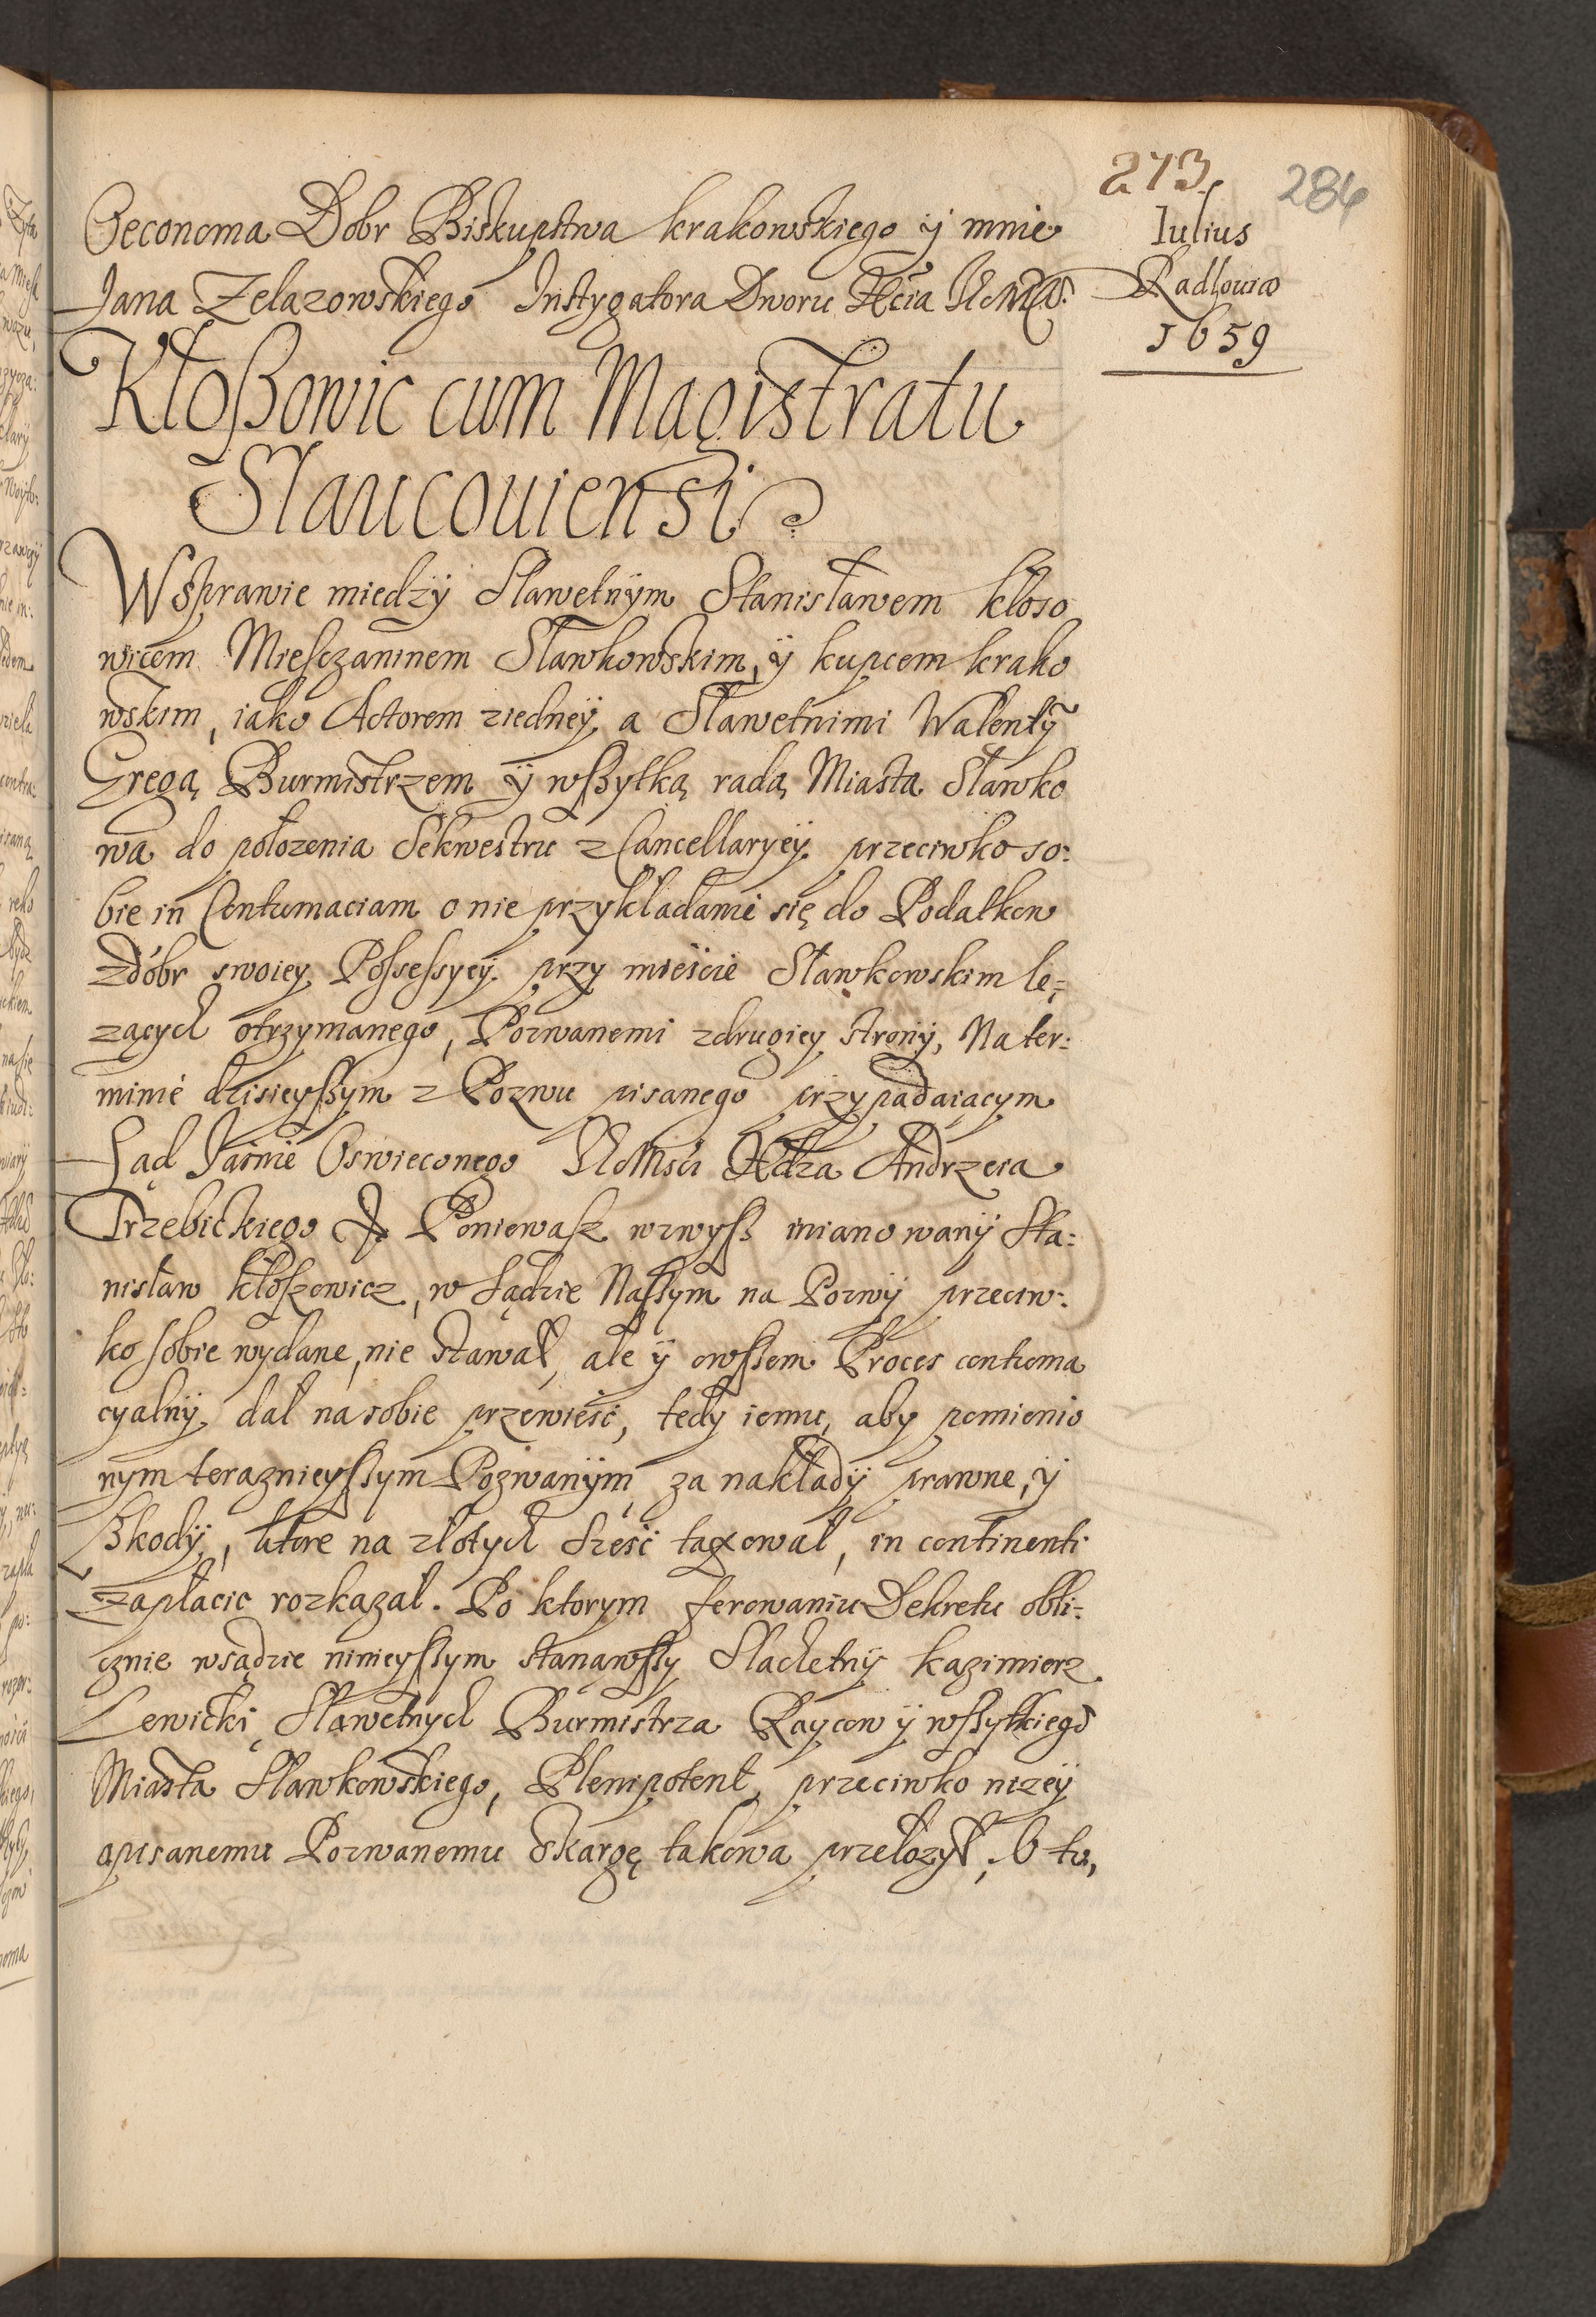 273
284
Iulius
Radlowiæ
1659
Oeconoma Dobr Biskupstwa krakowskiego ÿ mnie
Jana Zelazowskiego Instygatora Dworu
Kłoßowic cum Magistratu
Slaucouiensi
Wsprawie miedzÿ Sławetnÿm Stanisławem kłoso
wicem Miesczaninem Sławkowskim, ÿ kupcem krako
wskim, iako Actorem ziedneÿ, a Sławetnimi Walentÿ
Gregą Burmistrzem ÿ wßytką radą Miasta Sławko
wa do położenia Sekwestru z Cancellaryeÿ przeciwko so:
bie in Contumaciam o nie przykładanie się do Podatkow
zdóbr swoiey Possessyeÿ przy mieście Sławkowskim le=
zących otrzymanego, Pozwanemi zdrugiey stronÿ, Na ter:
minie dzisieyßym z Pozwu pisanego przypadaiącym
Sąd Jaśnie Oswieconego Andrzeia
Trzebickiego &. Poniewasz wzwyß mianowanÿ Sta:
nisław kłoszowicz, w Sądzie Naßym na Pozwÿ przeciw:
ko sobie wydane, nie stawał, ale ÿ owßem Proces contuma
cyalnÿ dał na sobie przewieść, tedy iemu, aby pomienio
nym teraznieyßym Pozwanÿm, za nakładÿ prawne, ÿ
ßkodÿ, ktore na złotych sześć taxował, in continenti
zapłacic rozkazał. Po ktorym ferowaniu Dekretu obli=
cznie wsądzie ninieyßym stanąwßy Slachetnÿ kazimierz
Lewicki, Sławetnych Burmistrza Raycow ÿ wßytkiego
Miasta Sławkowskiego, Plenipotent, przeciwko nizeÿ
opisanemu Pozwanemu Skargę takowa przełożył, O to,